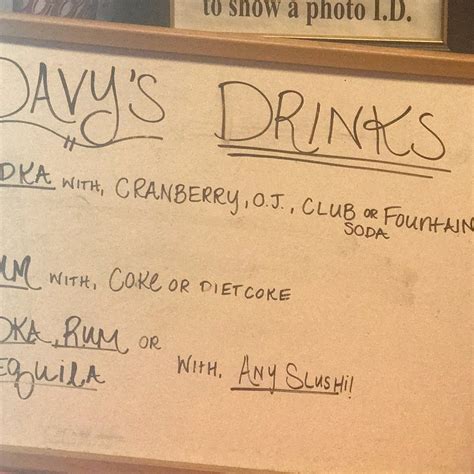 to show a photo I.D.
DAVY'S DRINKS
DKA WITH, CRANBERRY, O.J., CLUB OR FOUNTAIN
SODA
UM WITH, COKE OR DIET COKE
DKA, RUM OR
EQUILA WITH, ANY SLUSHI!